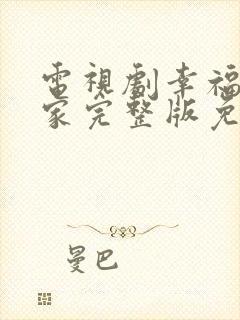 電視劇幸福
家完整版免
曼巴